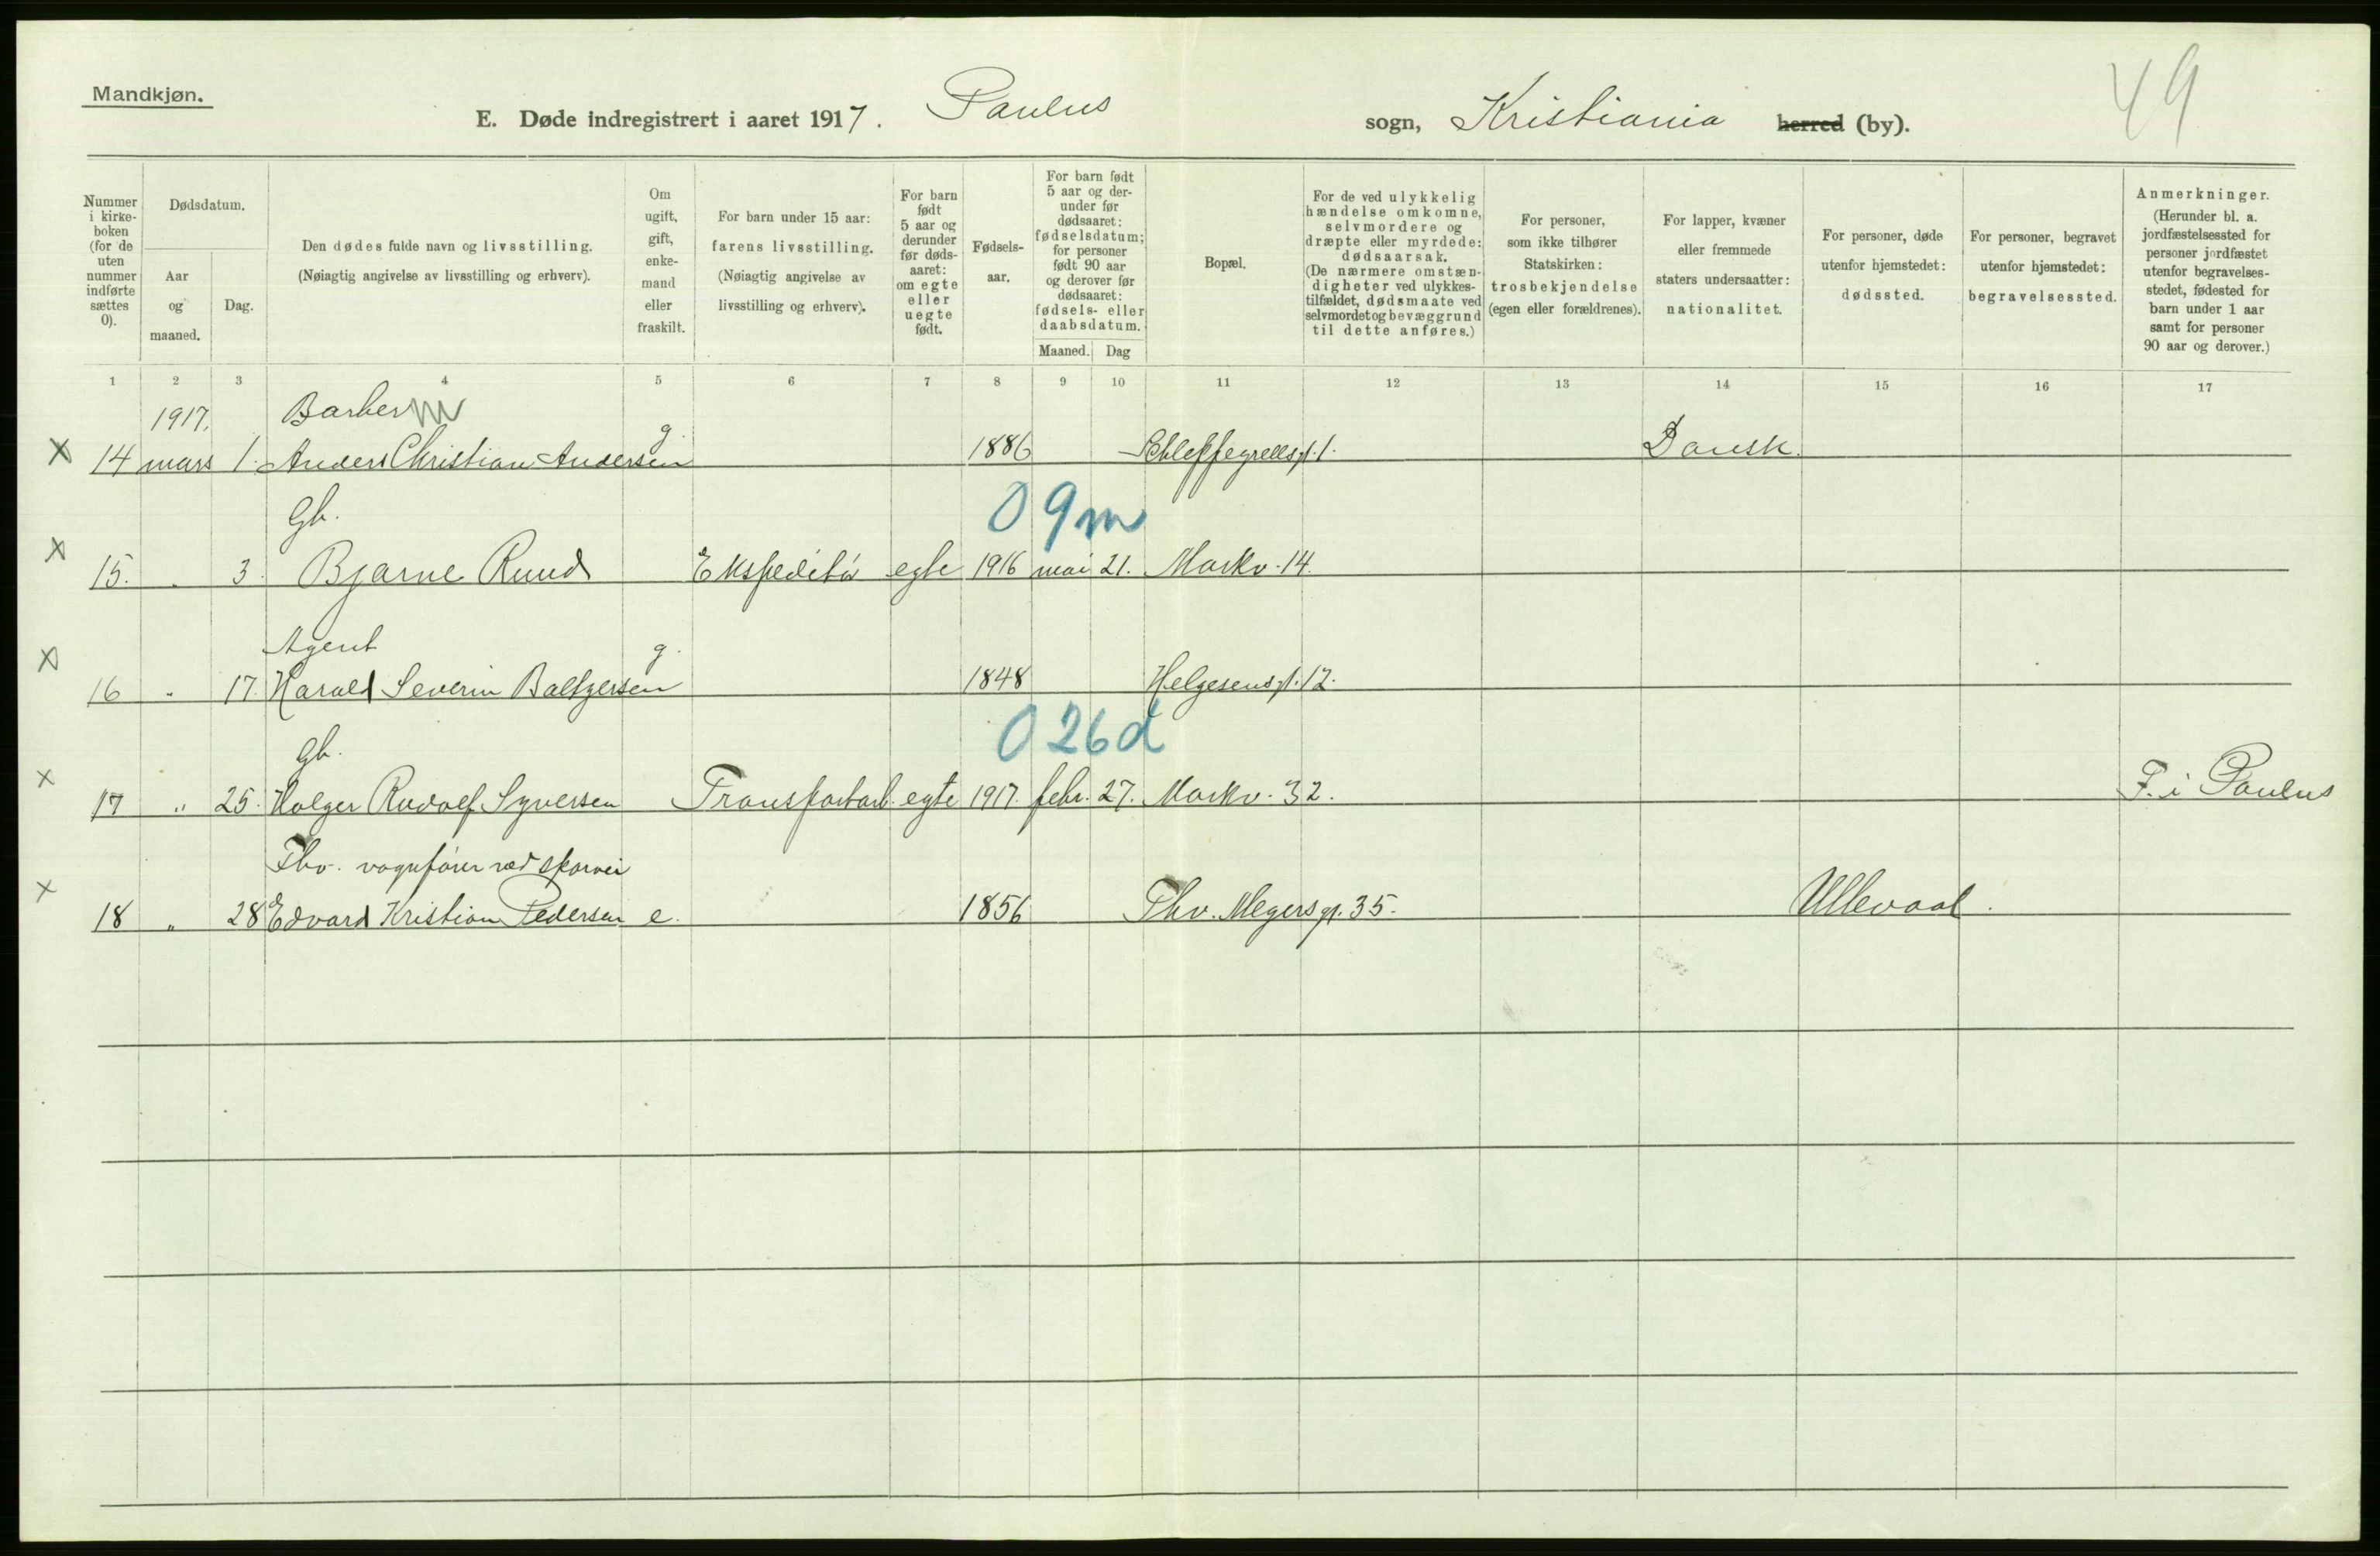 Mandkjøn.
E. Døde indregistrert i aaret 1917. Paulus sogn, Kristiania herred (by).
49
Nummer i kirke-boken (for de uten nummer indførte sættes 0).
Dødsdatum.
Aar og maaned.
Dag.
Den dødes fulde navn og livsstilling.
(Nøiagtig angivelse av livsstilling og erhverv).
Om ugift, gift, enke-mand eller fraskilt.
For barn under 15 aar: farens livsstilling.
(Nøiagtig angivelse av livsstilling og erhverv).
For barn født 5 aar og derunder før døds-aaret: om egte eller uegte født.
Fødsels-aar.
For barn født 5 aar og der-under før dødsaaret: fødselsdatum; for personer født 90 aar og derover før dødsaaret: fødsels- eller daabsdatum.
Maaned. Dag
Bopæl.
For de ved ulykkelig hændelse omkomne, selvmordere og dræpte eller myrdede: dødsaarsak.
(De nærmere omstæn-digheter ved ulykkes-tilfældet, dødsmaate ved selvmordet og bevæggrund til dette anføres.)
For personer, som ikke tilhører Statskirken: trosbekjendelse (egen eller forældrenes).
For lapper, kvæner eller fremmede staters undersaatter: nationalitet.
For personer, døde utenfor hjemstedet: dødssted.
For personer, begravet utenfor hjemstedet: begravelsessted.
Anmerkninger.
(Herunder bl. a. jordfæstelsessted for personer jordfæstet utenfor begravelses-stedet, fødested for barn under 1 aar samt for personer 90 aar og derover.)
1 2 3 4 5 6 7 8 9 10 11 12 13 14 15 16 17
1917. Barber m
x 14 mars 1. Anders Christian Andersen g. 1886 Schleppegrellsgt. 1. Dansk.
Gb. 0 9m
x 15. " 3. Bjarne Ruud Ekspeditør egte 1916 mai 21. Markv. 14.
Agent
x 16 " 17. Harald Severin Baltzersen g. 1848 Helgesensgt. 12.
Gb. 0 26d
x 17 " 25. Holger Rudolf Syversen Transportarb. egte 1917. febr. 27. Markv. 32. F. i Paulus
Fhv. vognfører ved sporvei
x 18 " 28 Edvard Kristian Pedersen e. 1856 Thv. Meyersgt. 35. Ullevaal.